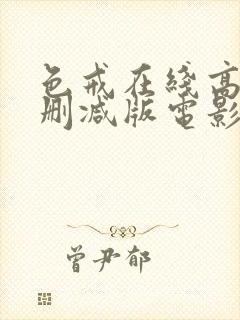 色戒在綫高
删减版電影
曾尹郁